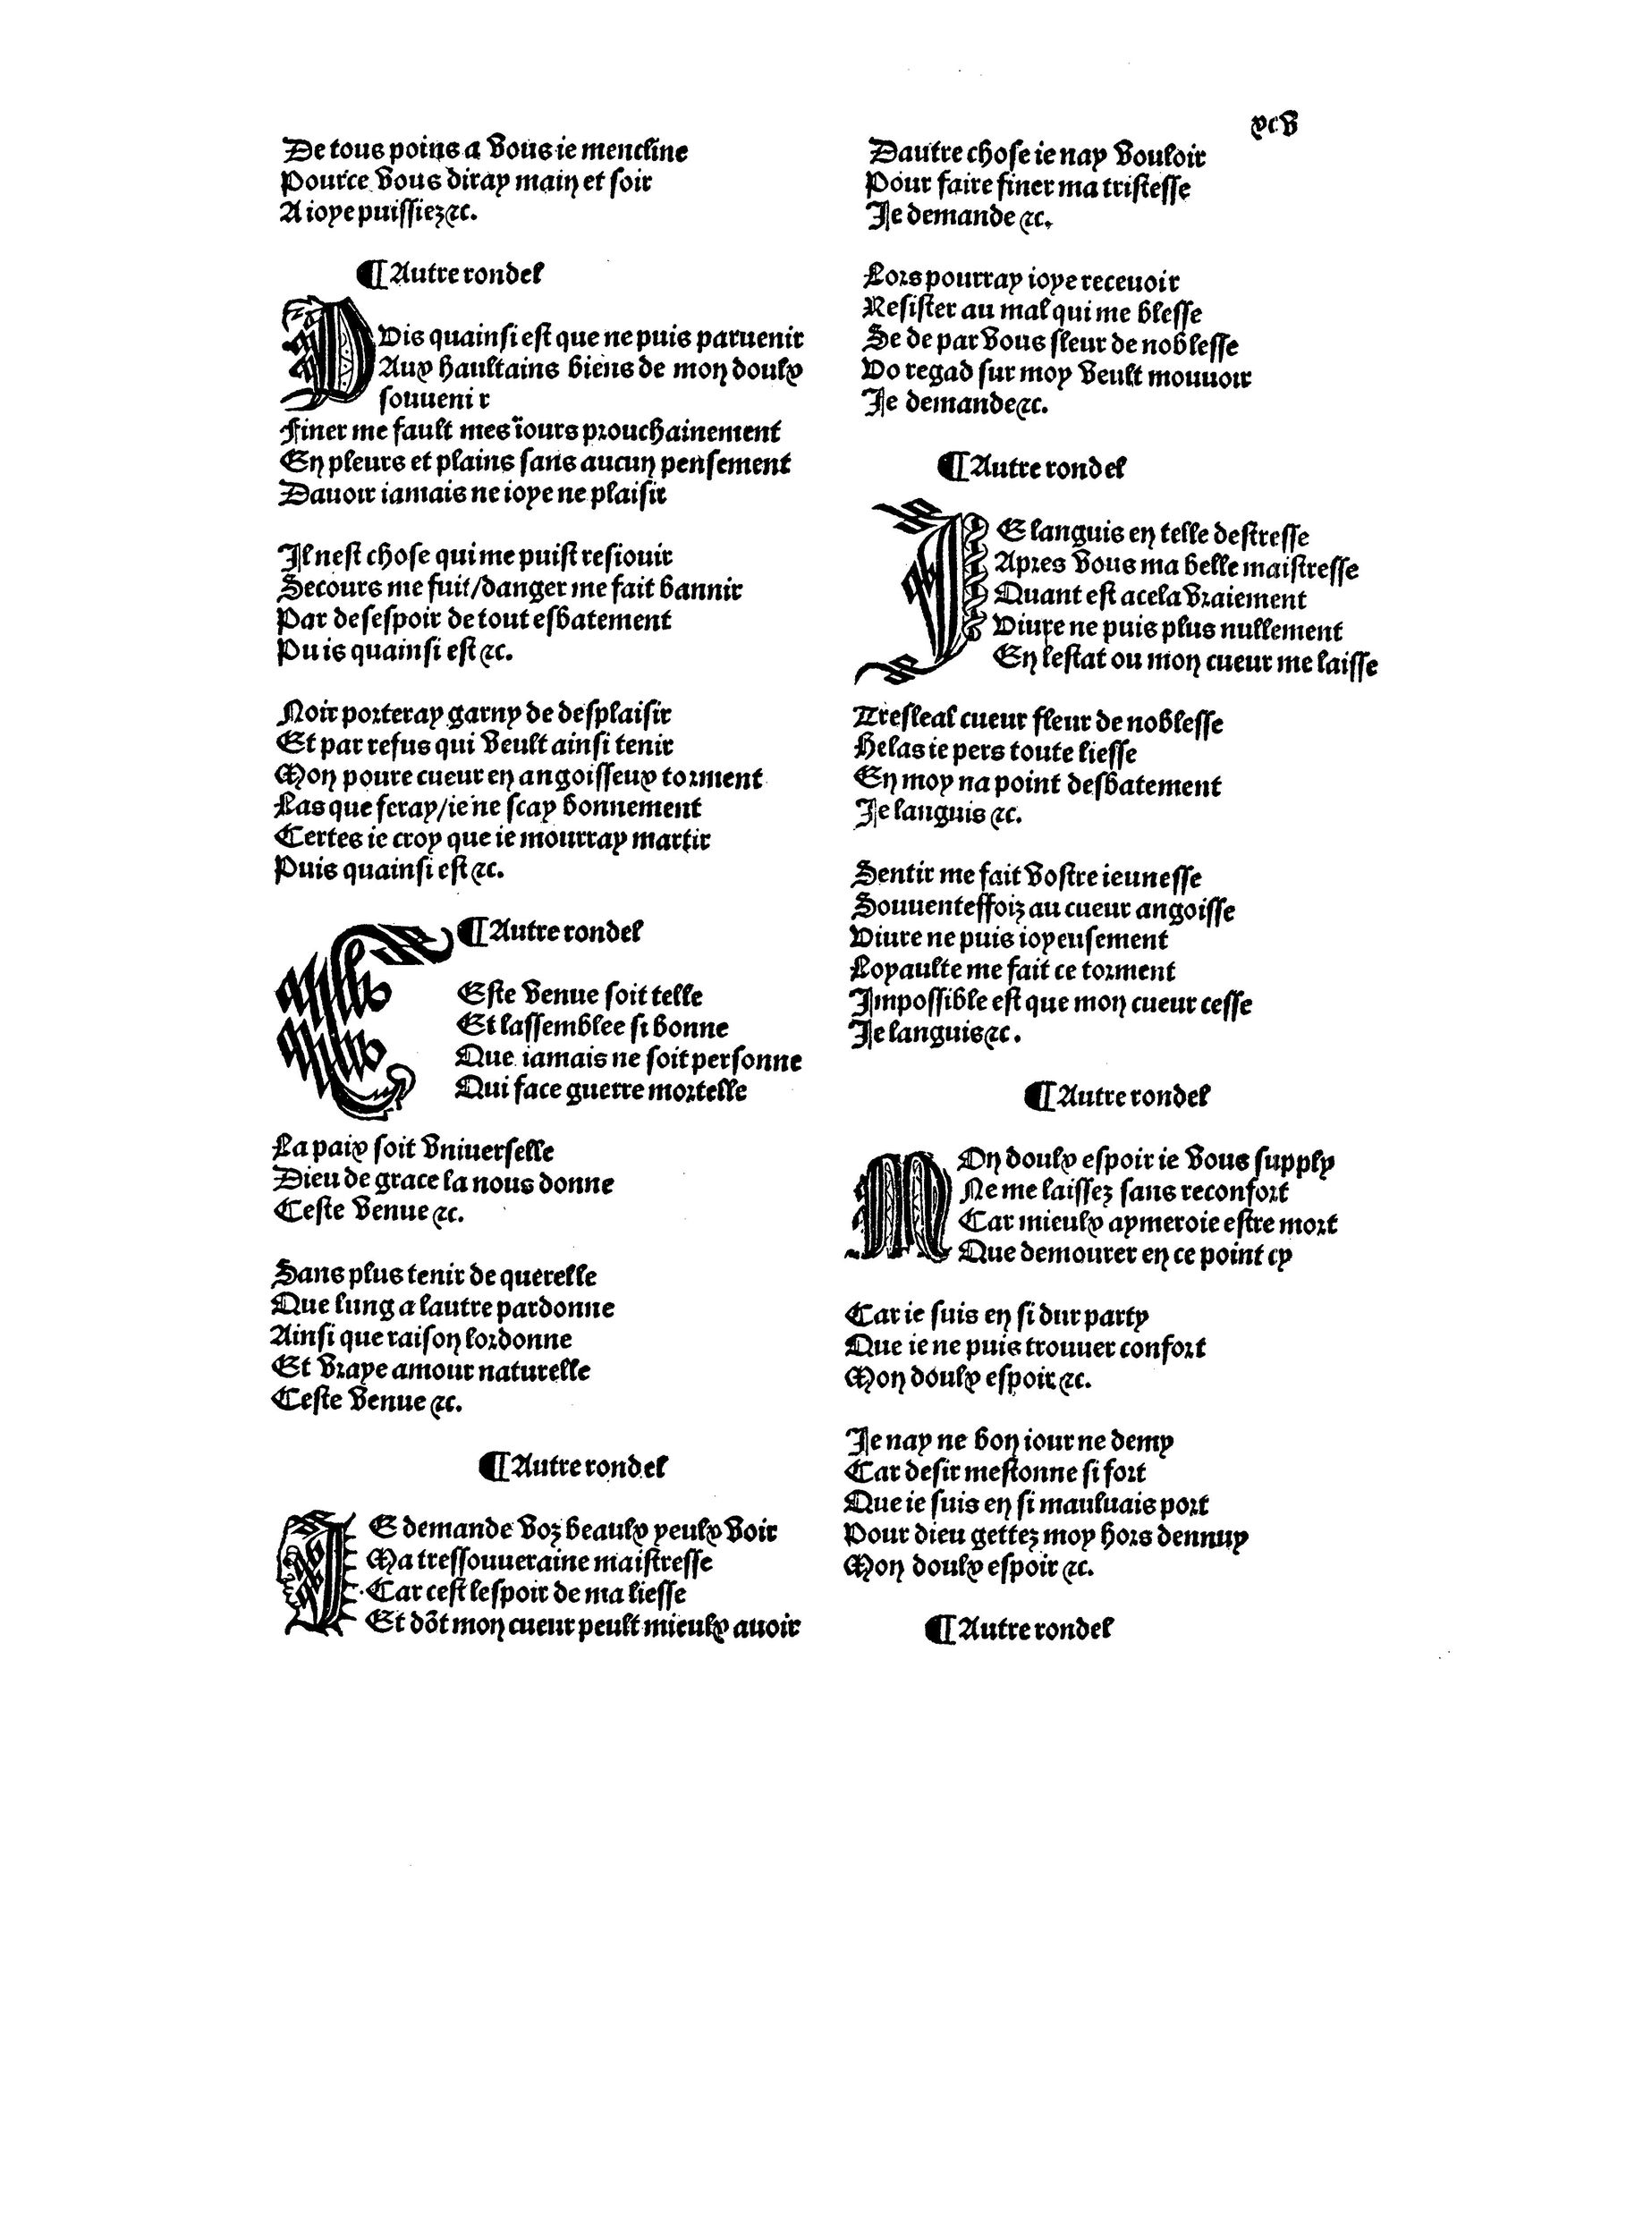 xcv
De tous poins a vous ie mencline
Pource vous diray main et soir
A ioye puissiez &c.
¶ Autre rondel
PUis quainsi est que ne puis paruenir
Aux haultains biens de mon doulx
souuenir
Finer me fault mes iours prouchainement
En pleurs et plains sans aucun pensement
Dauoir iamais ne ioye ne plaisir
Il nest chose qui me puist resiouir
Secours me fuit/danger me fait bannir
Par desespoir de tout esbatement
Puis quainsi est &c.
Noir porteray garny de desplaisir
Et par refus qui veult ainsi tenir
Mon poure cueur en angoisseux torment
Las que feray/ie ne scay bonnement
Certes ie croy que ie mourray martir
Puis quainsi est &c.
¶ Autre rondel
CEste venue soit telle
Et lassemblee si bonne
Que iamais ne soit personne
Qui face guerre mortelle
La paix soit vniuerselle
Dieu de grace la nous donne
Ceste venue &c.
Sans plus tenir de querelle
Que lung a lautre pardonne
Ainsi que raison lordonne
Et vraye amour naturelle
Ceste venue &c.
¶ Autre rondel
IE demande voz beaulx yeulx voir
Ma tressouueraine maistresse
Car cest lespoir de ma liesse
Et dōt mon cueur peult mieulx auoir
Dautre chose ie nay vouloir
Pour faire finer ma tristesse
Je demande &c.
Lors pourray ioye receuoir
Resister au mal qui me blesse
Se de par vous fleur de noblesse
Vo regad sur moy veult mouuoir
Je demande &c.
¶ Autre rondel
IE languis en telle destresse
Apres vous ma belle maistresse
Quant est a cela vraiement
Viure ne puis plus nullement
En lestat ou mon cueur me laisse
Tresleal cueur fleur de noblesse
Helas ie pers toute liesse
En moy na point desbatement
Je languis &c.
Sentir me fait vostre ieunesse
Souuenteffoiz au cueur angoisse
Viure ne puis ioyeusement
Loyaulte me fait ce torment
Impossible est que mon cueur cesse
Je languis &c.
¶ Autre rondel
MOn doulx espoir ie vous supply
Ne me laissez sans reconfort
Car mieulx aymeroie estre mort
Que demourer en ce point cy
Car ie suis en si dur party
Que ie ne puis trouuer confort
Mon doulx espoir &c.
Je nay ne bon iour ne demy
Car desir mestonne si fort
Que ie suis en si mauluais port
Pour dieu gettez moy hors dennuy
Mon doulx espoir &c.
¶ Autre rondel